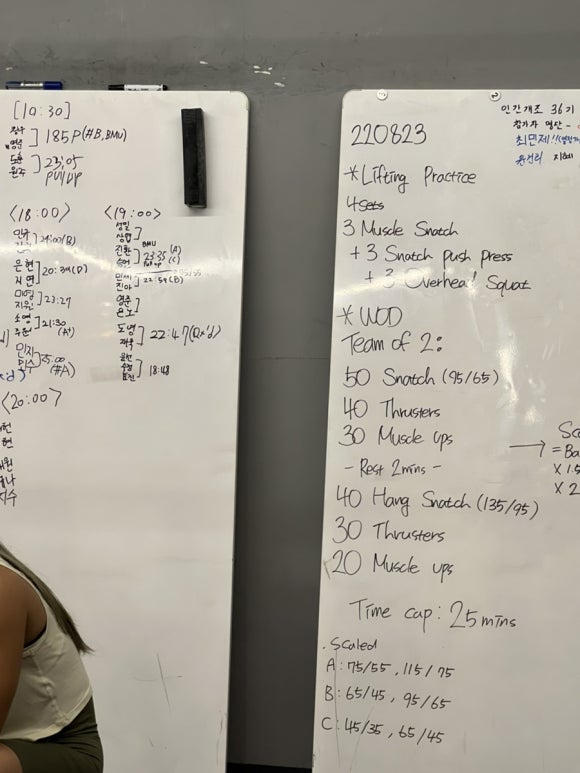 [10:30]
185P (#B, BMU)
23:05
pull up
<18:00>
24:00 (B)
은현
지연
20:
(D)
지원
23:27
소영
21:30
(A)
민지
25:00
(#A)
<20:00>
지수
<19:00>
성일
상엽
진환
BMU
23:35 (A)
(C)
진아
22:54 (B)
영준
도영
22:47 (Rx'd)
18:48
220823
*Lifting Practice
4 sets
3 Muscle Snatch
+ 3 Snatch push press
+ 3 Overhead Squat
* WOD
Team of 2:
50 Snatch (95/65)
40 Thrusters
30 Muscle ups
- Rest 2mins -
40 Hang Snatch (135/95)
30 Thrusters
20 Muscle ups
Time cap: 25mins
. Scaled
A: 75/55, 115/75
B: 65/45, 95/65
C: 45/35, 65/45
인간개조 36기
참가자 명단 -
최민제!!
→
X 1.5
X 2